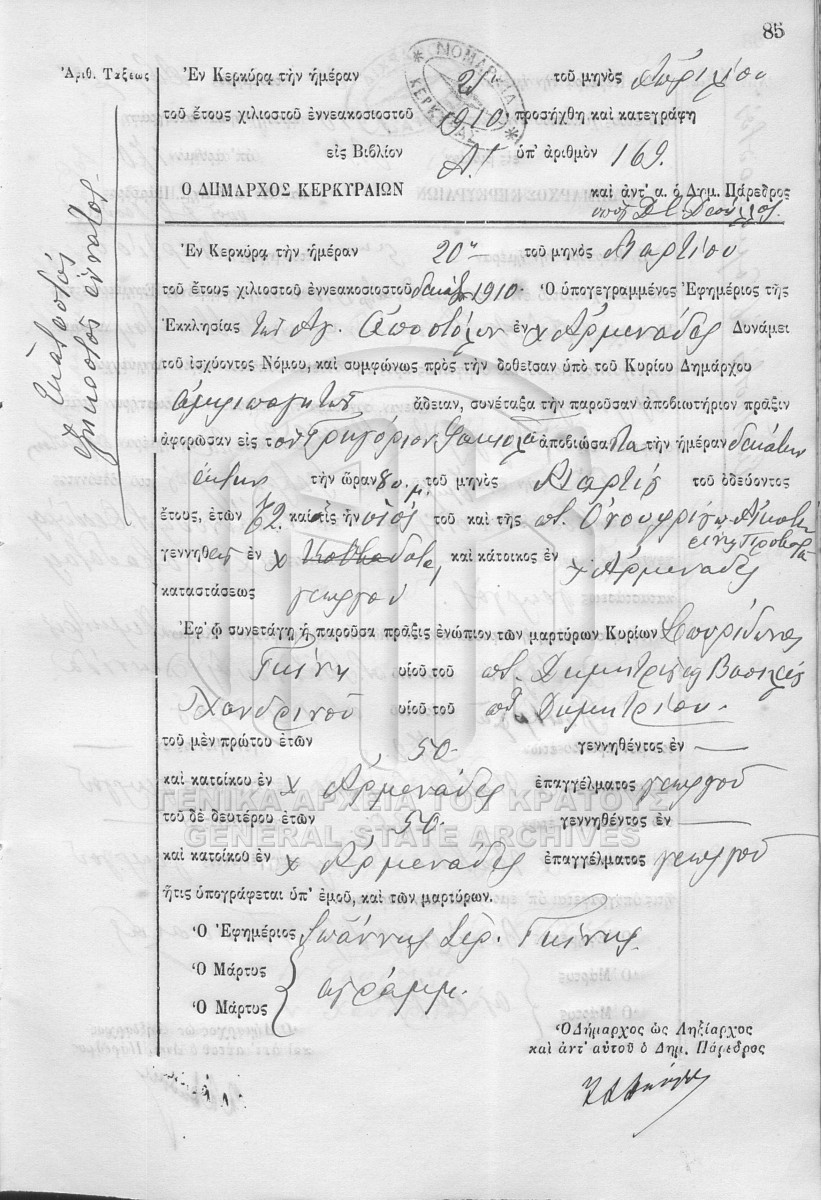 85
Ἀριθ. Τάξεως
Ἑκατοστός
ἑξηκοστός ἔννατος
Ἐν Κερκύρᾳ τὴν ἡμέραν 21 τοῦ μηνὸς Ἀπριλίου
τοῦ ἔτους χιλιοστοῦ ἐννεακοσιοστοῦ 1910 προσήχθη καὶ κατεγράφη
ΝΟΜΑΡΧΙΑ ΚΕΡΚΥΡΑΣ
εἰς Βιβλίον Α! ὑπ' ἀριθμὸν 169.
Ο ΔΗΜΑΡΧΟΣ ΚΕΡΚΥΡΑΙΩΝ καὶ ἀντ' α. ὁ Δημ. Πάρεδρος
Ἐν Κερκύρᾳ τὴν ἡμέραν 20ην τοῦ μηνὸς Μαρτίου
τοῦ ἔτους χιλιοστοῦ ἐννεακοσιοστοῦ δεκάτου 1910. Ὁ ὑπογεγραμμένος Ἐφημέριος τῆς
Ἐκκλησίας τῶν Ἁγ. Ἀποστόλων ἐν χ Ἀρμενάδες Δυνάμει
τοῦ ἰσχύοντος Νόμου, καὶ συμφώνως πρὸς τὴν δοθεῖσαν ὑπὸ τοῦ Κυρίου Δημάρχου
ἄδειαν, συνέταξα τὴν παροῦσαν ἀποβιωτήριον πρᾶξιν
ἀφορῶσαν εἰς τὸν Γρηγόριον ἀποβιώσαντα τὴν ἡμέραν δεκάτην
ἕκτην τὴν ὥραν 8 μ. τοῦ μηνὸς Μαρτίου τοῦ ὁδεύοντος
ἔτους, ἐτῶν 72 καὶ εἰς ἣν υἱός τοῦ καὶ τῆς ποτ. Ὀνουφρίου
γεννηθεὶς ἐν χ καὶ κάτοικος ἐν χ Ἀρμενάδες
καταστάσεως γεωργοῦ
Ἐφ' ᾧ συνετάγη ἡ παροῦσα πρᾶξις ἐνώπιον τῶν μαρτύρων Κυρίων Σπυρίδωνος
Γκίνη υἱοῦ τοῦ ποτ. Δημητρίου καὶ Βασιλείου
Χονδρινοῦ υἱοῦ τοῦ ποτ. Δημητρίου.
τοῦ μὲν πρώτου ἐτῶν 50. γεννηθέντος ἐν —
καὶ κατοίκου ἐν χ Ἀρμενάδες ἐπαγγέλματος γεωργοῦ
ΓΕΝΙΚΑ ΑΡΧΕΙΑ ΤΟΥ ΚΡΑΤΟΥΣ
τοῦ δὲ δευτέρου ἐτῶν 50. γεννηθέντος ἐν —
GENERAL STATE ARCHIVES
καὶ κατοίκου ἐν χ Ἀρμενάδες ἐπαγγέλματος γεωργοῦ
ἥτις ὑπογράφεται ὑπ' ἐμοῦ, καὶ τῶν μαρτύρων.
Ὁ Ἐφημέριος Ἰωάννης Ἱερ. Γκίνης
Ὁ Μάρτυς
ἀγράμμ.
Ὁ Μάρτυς
Ὁ Δήμαρχος ὡς Ληξίαρχος
καὶ ἀντ' αὐτοῦ ὁ Δημ. Πάρεδρος